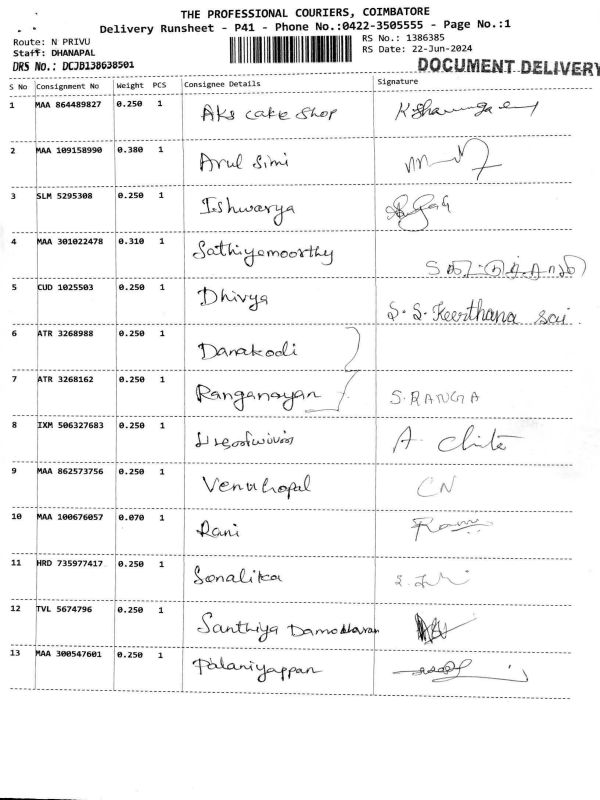 THE PROFESSIONAL COURIERS, COIMBATORE
Delivery Runsheet - P41 - Phone No.:0422-3505555 - Page No.:1
Route: N PRIVU
RS No.: 1386385
Staff: DHANAPAL
RS Date: 22-Jun-2024
DRS No.: DCJB138638501
DOCUMENT DELIVERY
S No Consignment No Weight PCS Consignee Details Signature
1 MAA 864489827 0.250 1 Aks cake shop
2 MAA 109158990 0.380 1 Arul Simi
3 SLM 5295308 0.250 1 Ishwarya
4 MAA 301022478 0.310 1 Sathiyamoorthy
5 CUD 1025503 0.250 1 Dhivya S. S. Keerthana Sai
6 ATR 3268988 0.250 1 Danakodi
7 ATR 3268162 0.250 1 Ranganayan S. RANGA
8 IXM 506327683 0.250 1 A. Chite
9 MAA 862573756 0.250 1 Venuhopal CN
10 MAA 100676057 0.070 1 Rani
11 HRD 735977417 0.250 1 Sonalika
12 TVL 5674796 0.250 1 Santhiya Damodharan
13 MAA 300547601 0.250 1 Palaniyappan